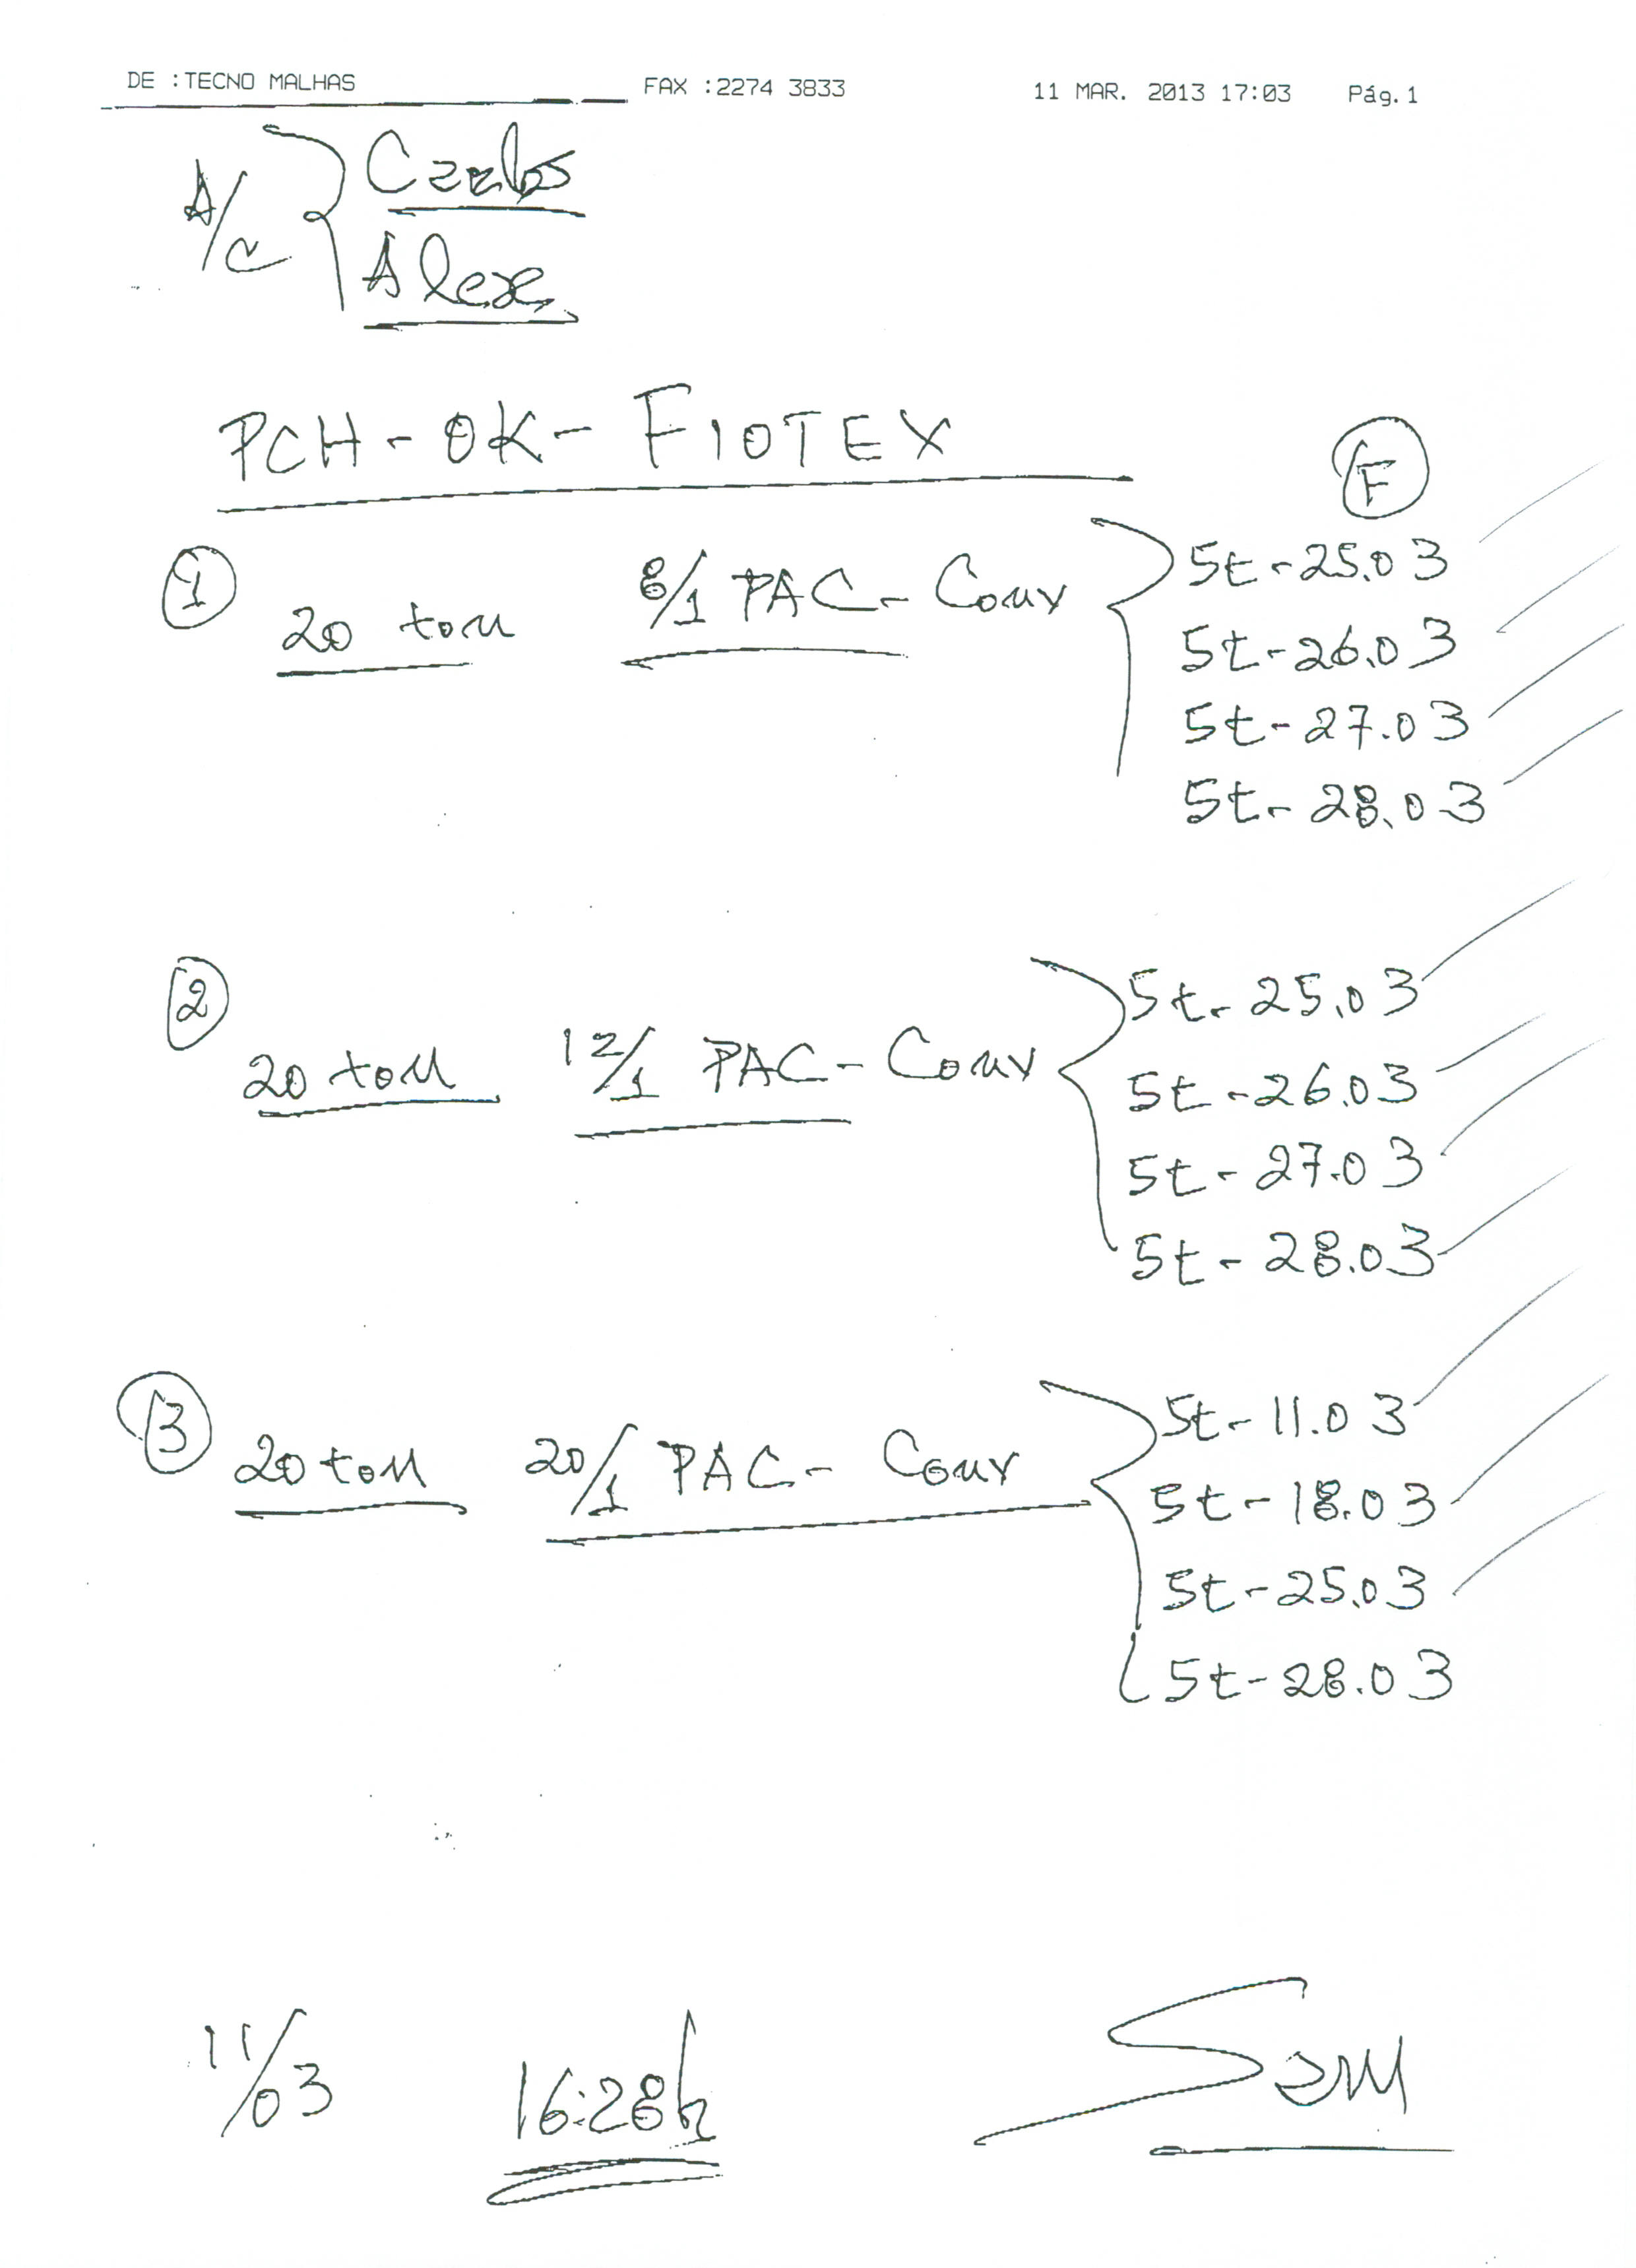 DE : TECNO MALHAS FAX : 2274 3833 11 MAR. 2013 17:03 Pág. 1
A/C Carlos
Alex
PCH - OK - FIOTEX
F
1 20 ton 8/1 PAC - Conv 5t - 25.03
5t - 26.03
5t - 27.03
5t - 28.03
2 20 ton 12/1 PAC - Conv 5t - 25.03
5t - 26.03
5t - 27.03
5t - 28.03
3 20 ton 20/1 PAC - Conv 5t - 11.03
5t - 18.03
5t - 25.03
5t - 28.03
11/03 16:28h Sam